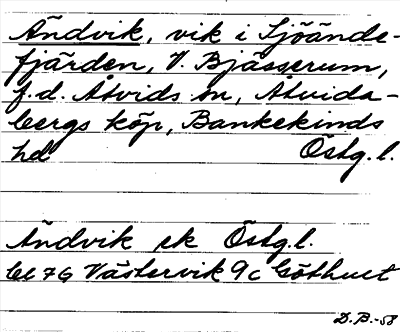 Ändvik, vik i Sjöände-
fjärden, V. Bjässerum,
f.d. Åtvids sn, Åtvida-
bergs köp, Bankekinds
hd Östg.l.
Ändvik ek Östg.l.
bl 7G Västervik 9c Göthult
D.B.-58